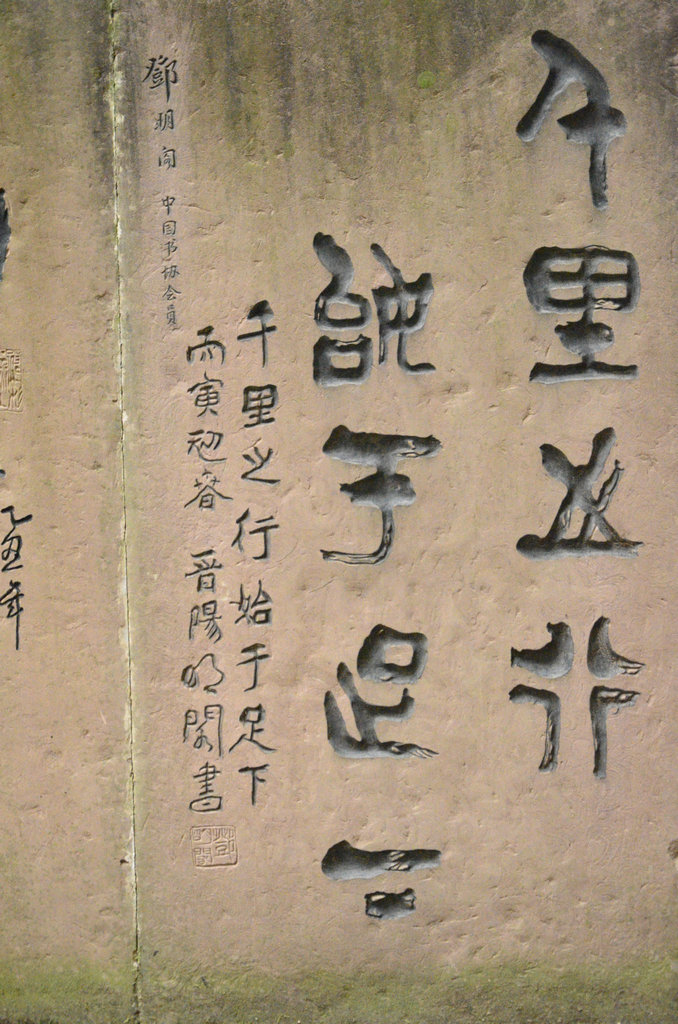 千里之行
始于足下
千里之行始于足下
丙寅初春 晋陽明閣書
鄧明阁 中国书协会員
乙丑年